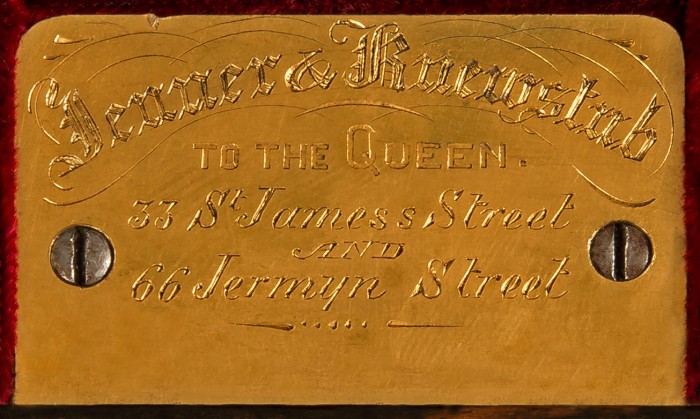 Jenner & Knewstub
TO THE QUEEN.
33 St. Jamess Street
AND
66 Jermyn Street